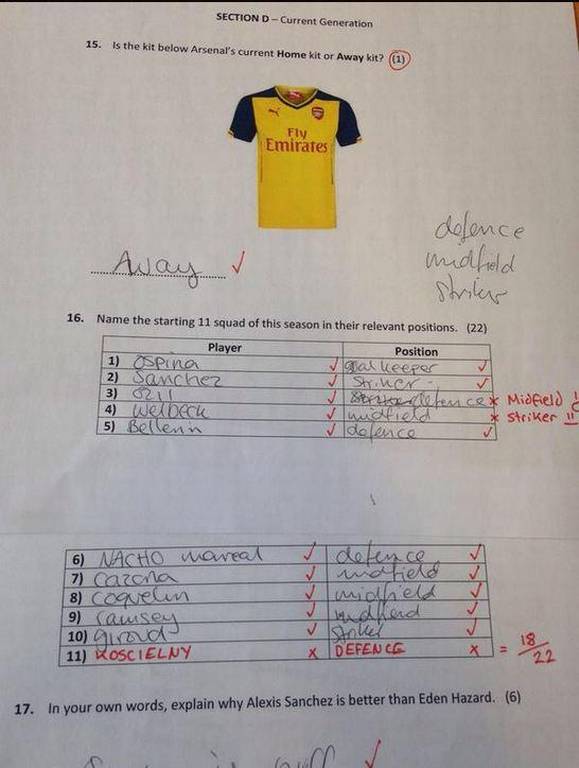 SECTION D – Current Generation
15. Is the kit below Arsenal's current Home kit or Away kit? (1)
Fly
Emirates
defence
midfield
striker
Away ✓
16. Name the starting 11 squad of this season in their relevant positions. (22)
Player Position
1) Ospina ✓ goalkeeper ✓
2) Sanchez ✓ striker ✓
3) Ozil ✓ defence x Midfield !
4) Welbeck ✓ midfield x striker !!
5) Bellerin ✓ defence ✓
6) NACHO monreal ✓ defence ✓
7) cazorla ✓ midfield ✓
8) coquelin ✓ midfield ✓
9) ramsey ✓ midfield ✓
10) giroud ✓ striker ✓
11) KOSCIELNY x DEFENCE x = 18/22
17. In your own words, explain why Alexis Sanchez is better than Eden Hazard. (6)
is ✓